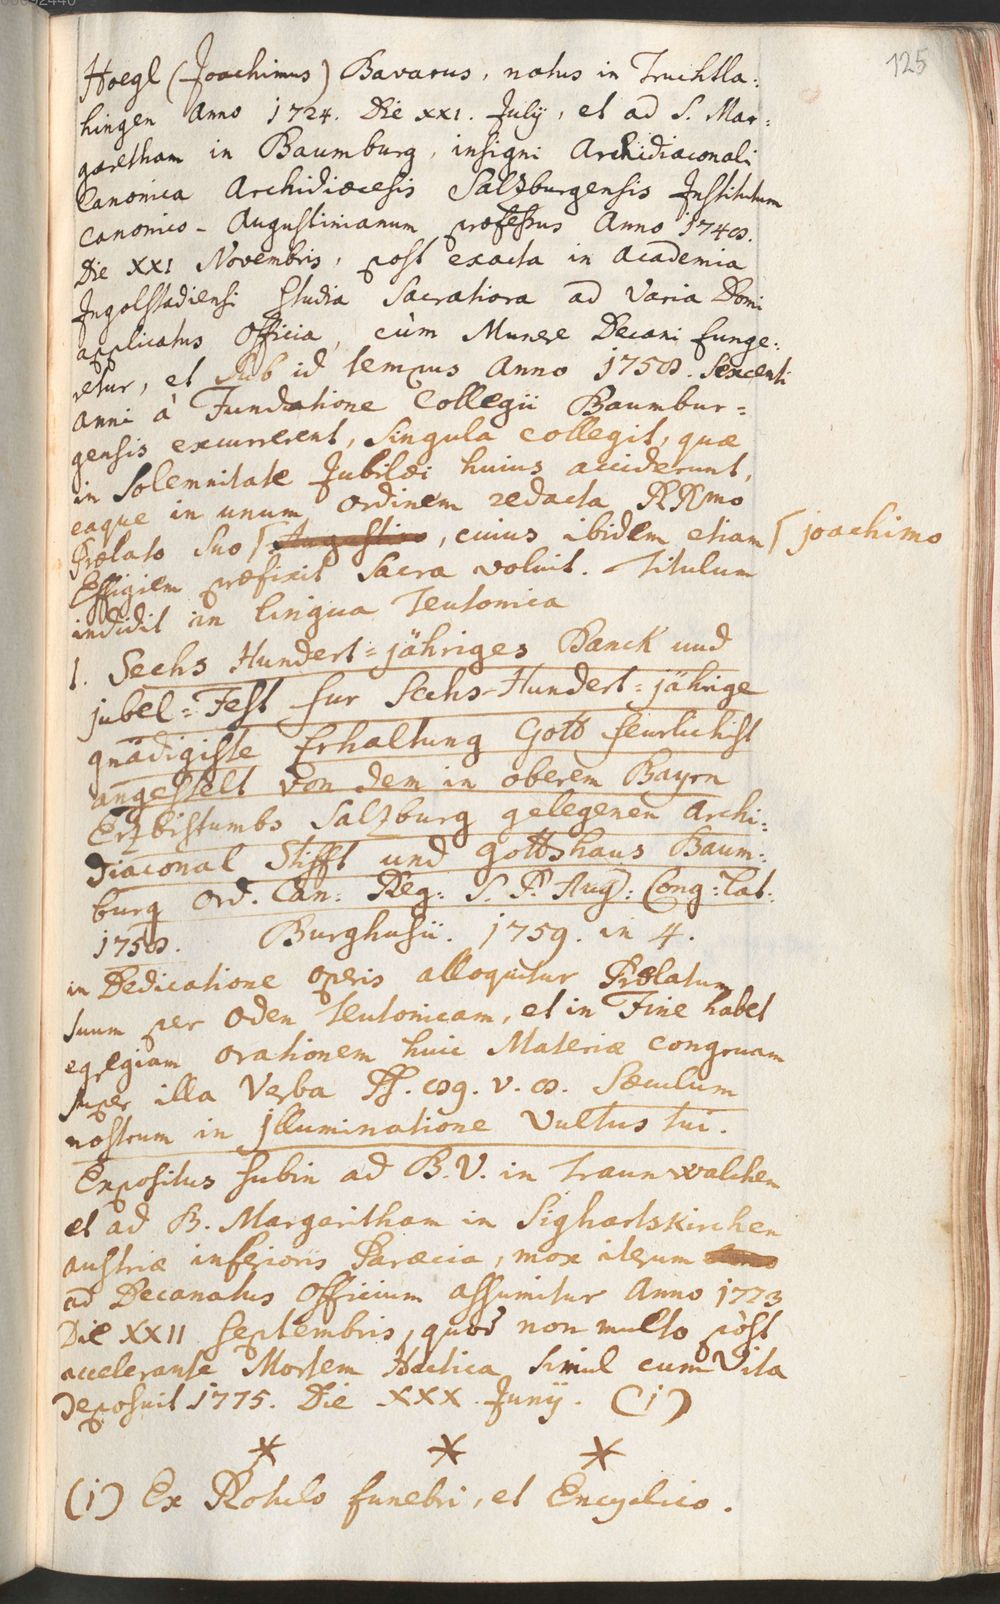 125
Hoegl (Joachimus) Bavarus, natus in Truchtla:
hingen Anno 1724. Die XXI. Julÿ, et ad S. Mar:
garetham in Baumburg, insigni Archidiaconali
Canonica Archidioecesis Salzburgensis Institutum
Canonico-Augustinianum professus Anno 1748.
Die XXI Novembris, post exacta in Academia
Ingolstadiensi Studia Sacratiora ad varia Domi
applicatus Officia, cùm Munere Decani funge:
retur, et sub id tempus Anno 1758. Sexcenti
anni à Fundatione Collegii Baumbur=
gensis excurrerent, singula collegit, quæ
in Solemnitate Jubilæi huius acciderunt,
eaque in unum ordinem redacta RR̃mo
Prælato suo ⌈ Augustino, cuius ibidem etiam ⌈ joachimo
Effigiem præfixit sacra voluit. Titulum
indidit in lingua Teutonica
1. Sechs Hundert=jähriges Danck und
jubel=Fest fur Sechs-Hundert=jährige
gnädigiste Erhaltung Gott feurlichist
angestelt von dem in oberem Bayrn
Erzbistumbs Salzburg gelegenen Archi:
diaconal Stifft und Gottshaus Baum:
burg Ord. Can: Reg: S. P. Aug: Cong: Lat:
1758. Burghusii. 1759. in 4.
in Dedicatione operis alloquitur Prælatum
suum per Oden teutonicam, et in Fine habet
egregiam orationem huic Materiæ congruam
super illa Verba Ps. 89. v. 8. Sæculum
nostrum in illuminatione Vultus tui.
Expositus subin ad B.V. in Traunwalchen
et ad B. Margaritham in Sighartskirchen
austriæ inferioris Paræcia, mox iterum
ad Decanatus Officium assumitur Anno 1773
Die XXII Septembris, quod non multo pòst
accelerante Mortem Hectica simul cum Vita
deposuit 1775. Die XXX. Junÿ. (i)
* * *
(i) Ex Rotulo funebri, et Encyclico.